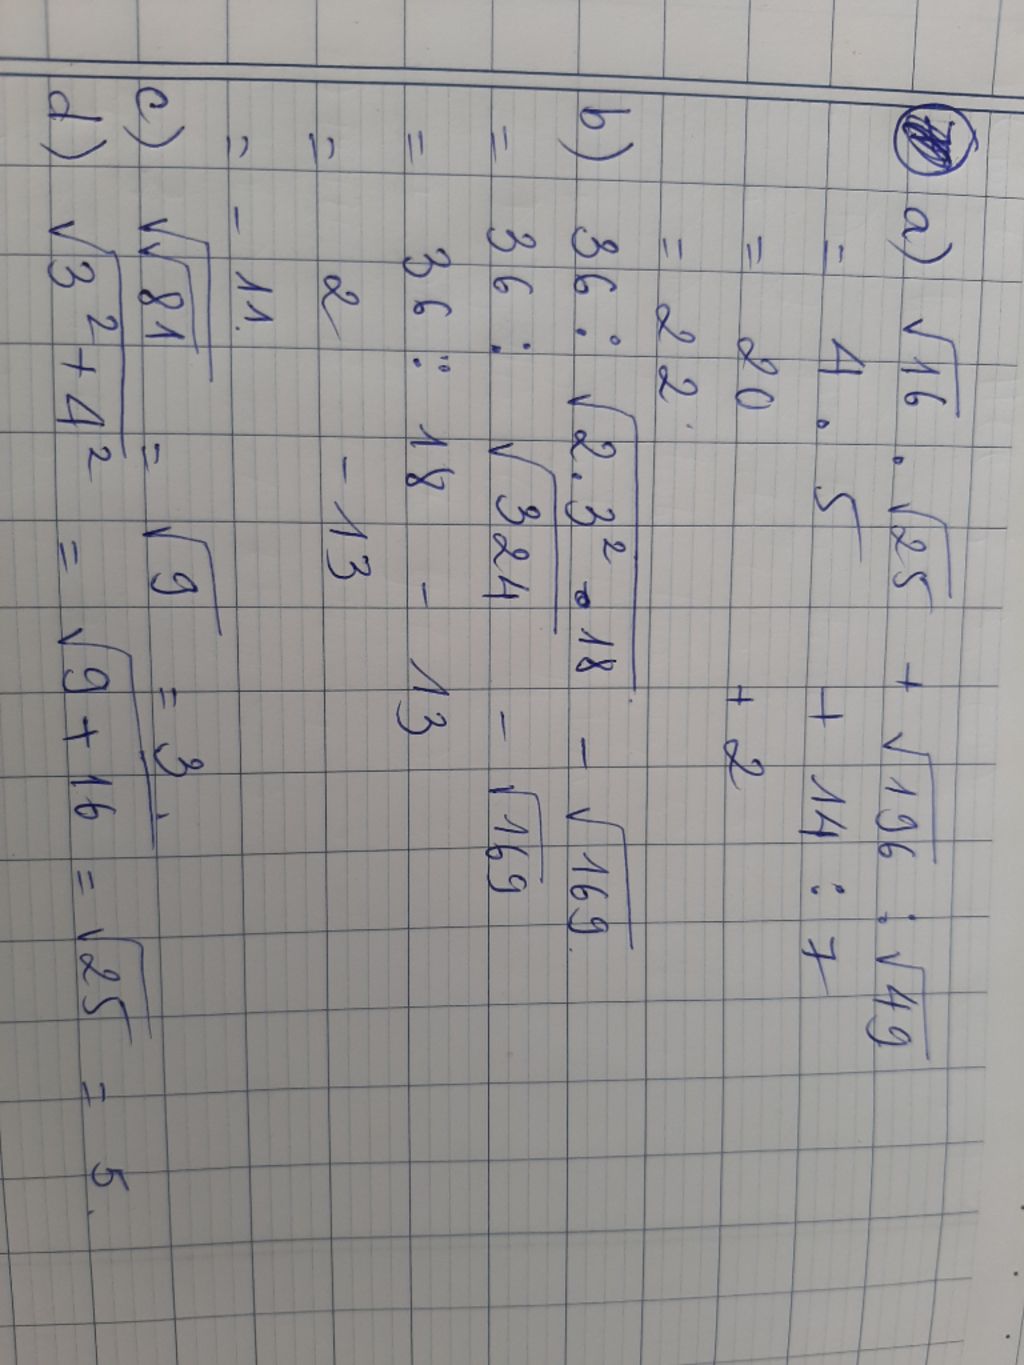 a) √16 . √25 + √196 : √49
= 4 . 5 + 14 : 7
= 20 + 2
= 22.
b) 36 : √2.3² . 18 - √169.
= 36 : √324 - √169
= 36 : 18 - 13
= 2 - 13
= - 11.
c) √√81 = √9 = 3.
d) √3² + 4² = √9 + 16 = √25 = 5.